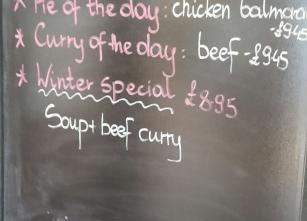 * Pie of the day: chicken balmoral
-£945
* Curry of the day: beef -£945
* Winter special £8.95
Soup + beef curry